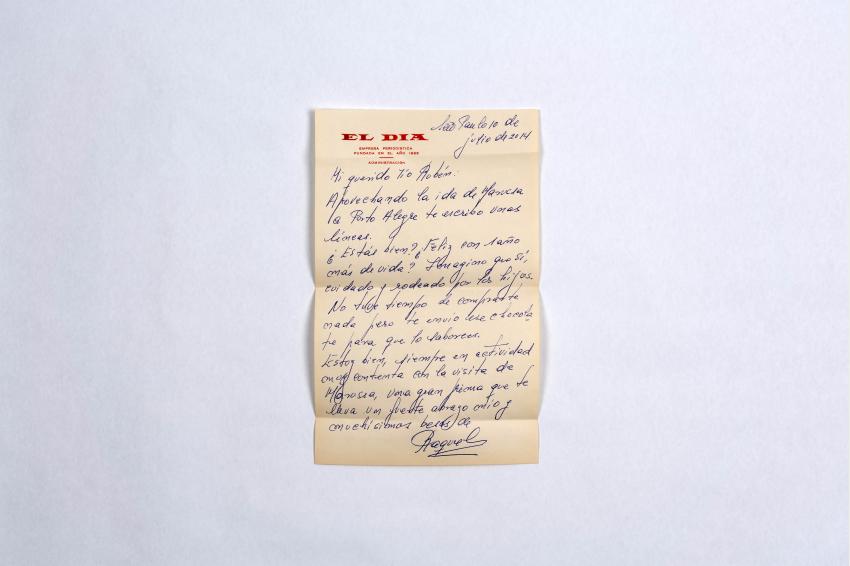 São Paulo 10 de
julio de 2014
EL DIA
EMPRESA PERIODISTICA
FUNDADA EN EL AÑO
ADMINISTRACION
Mi querido Tío Rubén:
Aprovechando la ida de Marusa
a Porto Alegre te escribo unas
líneas.
¿Estás bien? ¿Feliz con 1 año
más de vida? Imagino que sí,
cuidado y rodeado por los hijos.
No tuve tiempo de comprarte
nada pero te envío ese chocola-
te para que lo saborees.
Estoy bien, siempre en actividad
muy contenta con la visita de
Marusa, una gran prima que te
lleva un fuerte abrazo mío y
muchísimos besos de
Raquel